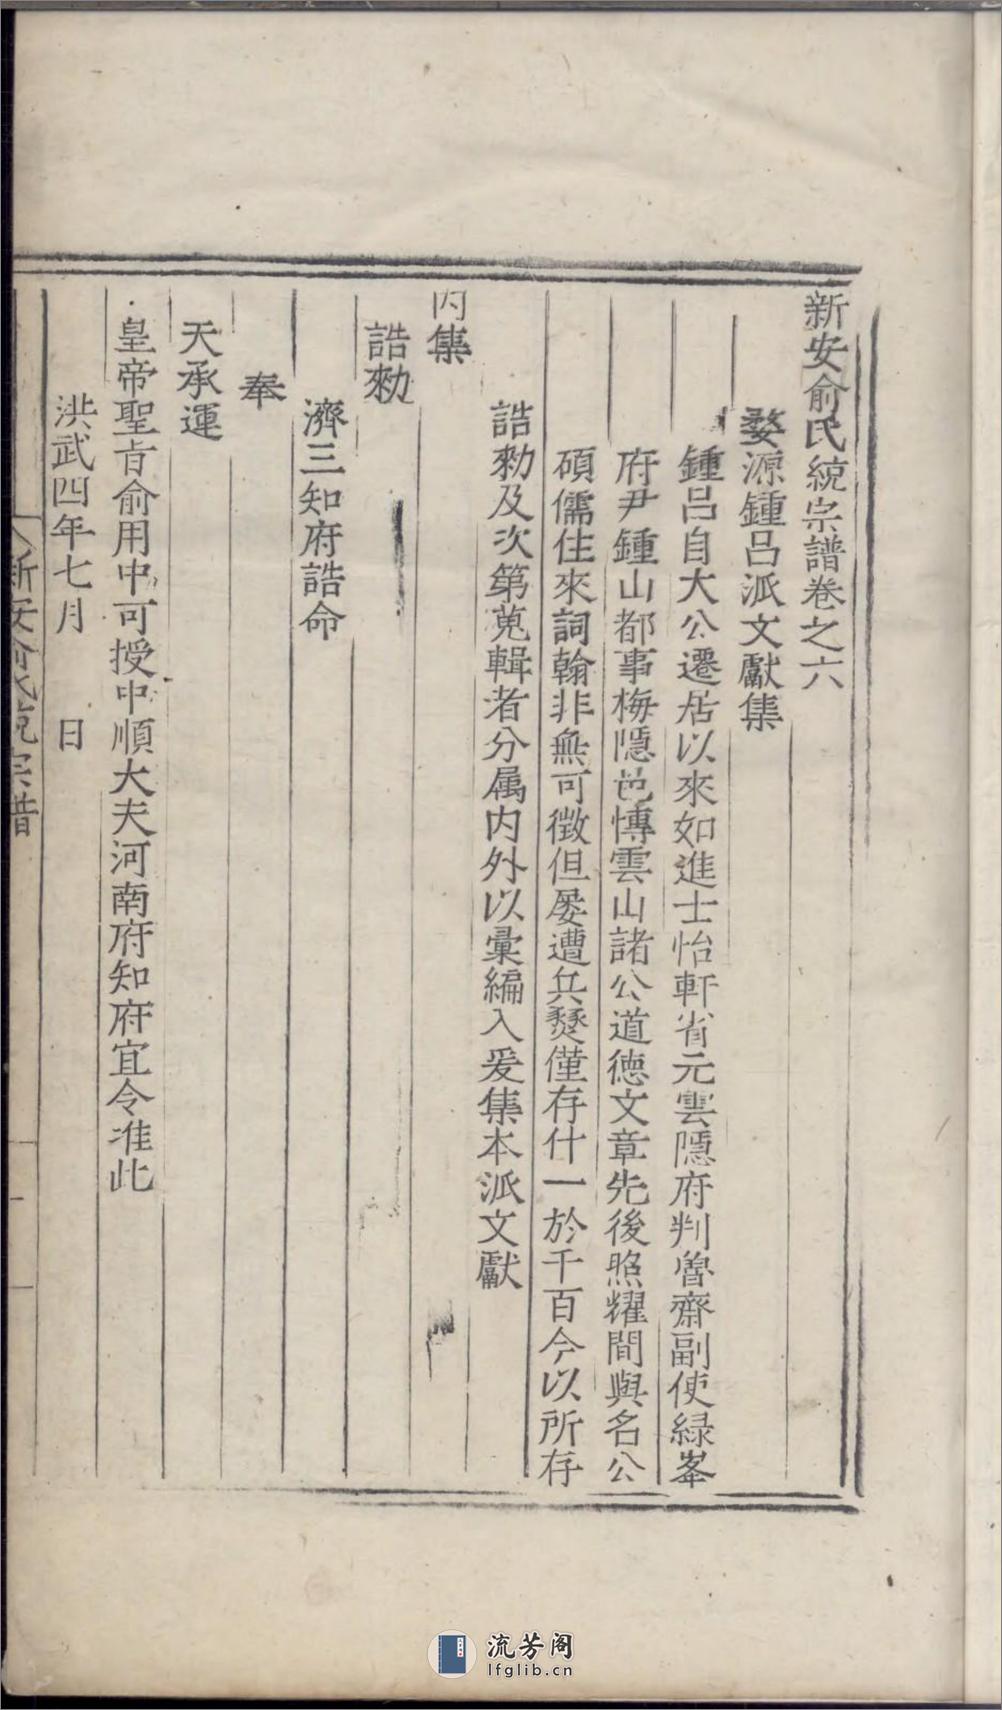 新安俞氏統宗譜卷之六
婺源鍾呂派文獻集
鍾呂自大公遷居以來如進士怡軒省元雲隱府判魯齋副使綠峯
府尹鍾山都事梅隱邑慱雲山諸公道德文章先後照耀間與名公
碩儒住來詞翰非無可徵但屡遭兵燹僅存什一於千百今以所存
誥勑及次第蒐輯者分属内外以彙編入爰集本派文獻
内集
誥勑
濟三知府誥命
奉
天承運
皇帝聖旨俞用中可授中順大夫河南府知府宜令准此
洪武四年七月 日
新安俞氏統宗譜
流芳阁
lfglib.cn